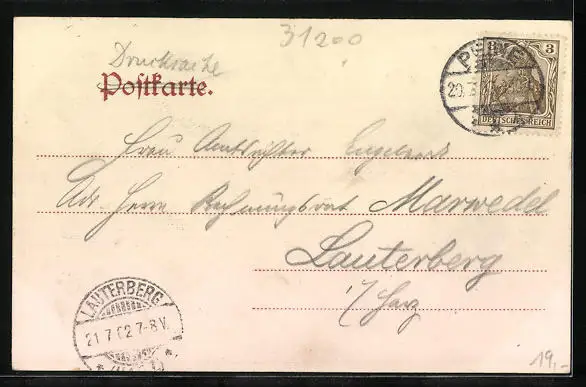 31200
Drucksache
Postkarte.
PEINE
20.7
3 3
DEUTSCHES REICH
Frau Amtsrichter Engelhard
Adr. Herrn Rechnungsrat Marwedel
Lauterberg
i/Harz
LAUTERBERG
21 7 02 7-8 V.
(HARZ)
19,-